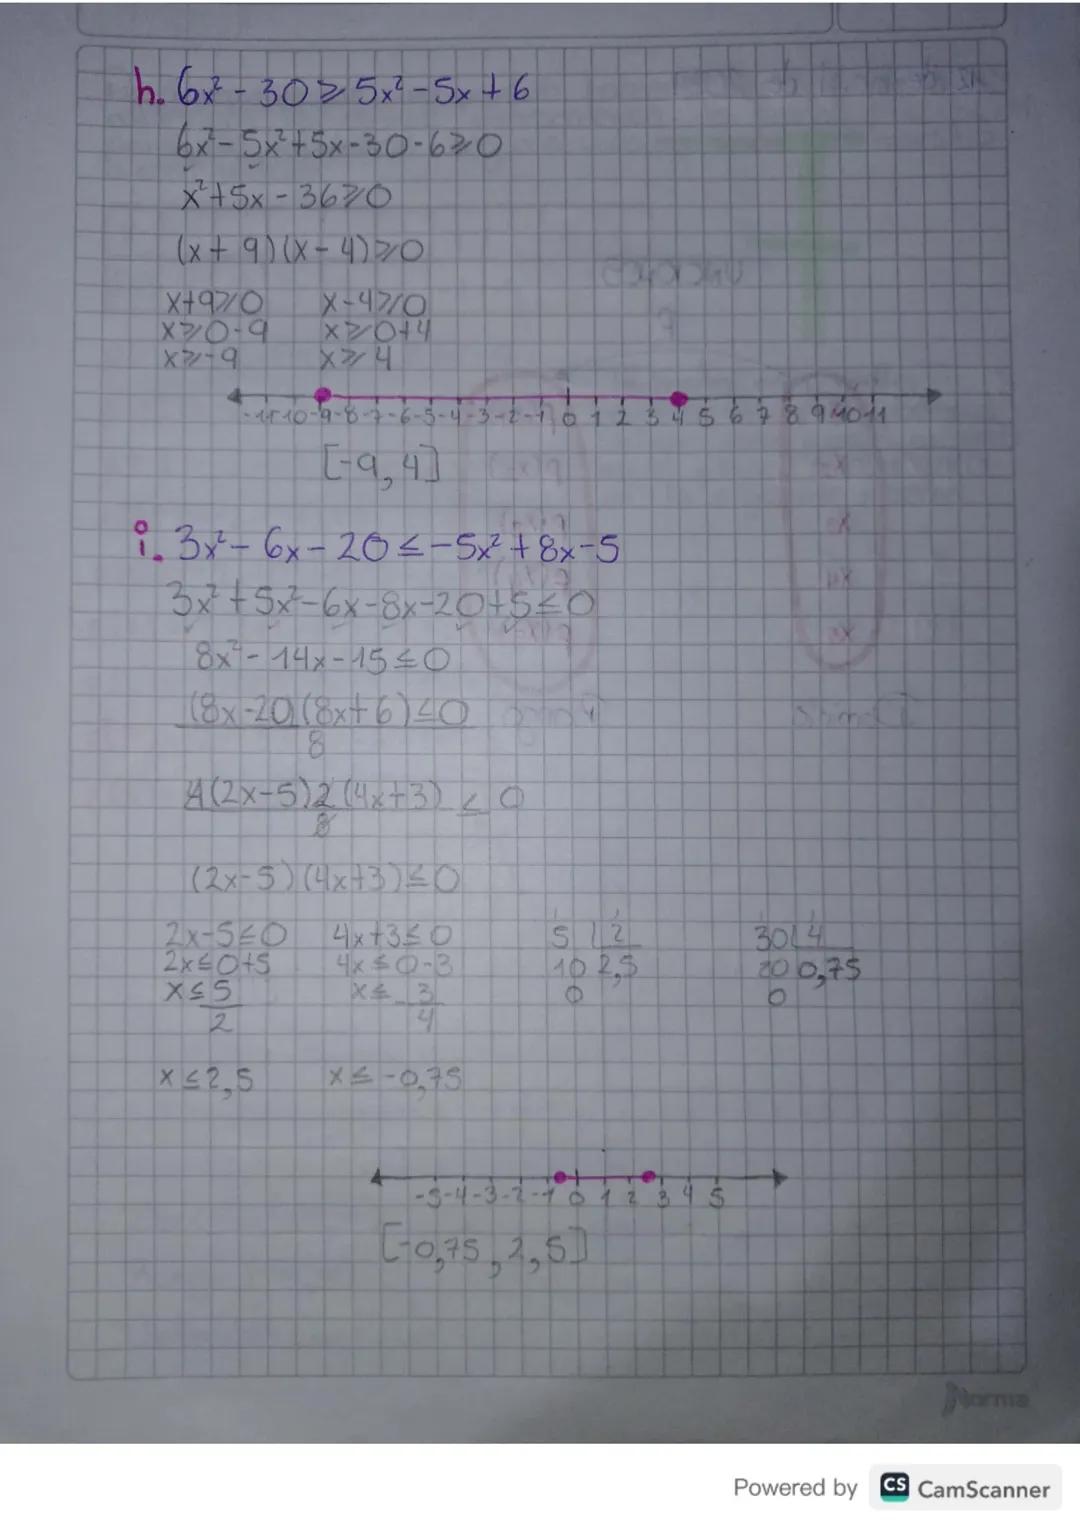 h. 6x² - 30 ≥ 5x² - 5x + 6
6x² - 5x² + 5x - 30 - 6 ≥ 0
x² + 5x - 36 ≥ 0
(x + 9)(x - 4) ≥ 0
x+9≥0 x-4≥0
x≥0-9 x≥0+4
x≥-9 x≥4
-11-10-9-8-7-6-5-4-3-2-1 0 1 2 3 4 5 6 7 8 9 10 11
[-9, 4]
i. 3x² - 6x - 20 ≤ -5x² + 8x - 5
3x² + 5x² - 6x - 8x - 20 + 5 ≤ 0
8x² - 14x - 15 ≤ 0
(8x - 20)(8x + 6) ≤ 0
8
4(2x-5)2(4x+3) ≤ 0
8
(2x-5)(4x+3) ≤ 0
2x-5≤0 4x+3≤0 5 2 30 4
2x≤0+5 4x≤0-3 10 2,5 20 0,75
x≤5 x≤-3 0 0
2 4
x≤2,5 x≤-0,75
-5-4-3-2-1 0 1 2 3 4 5
[-0,75, 2,5]
Norma
Powered by CS CamScanner